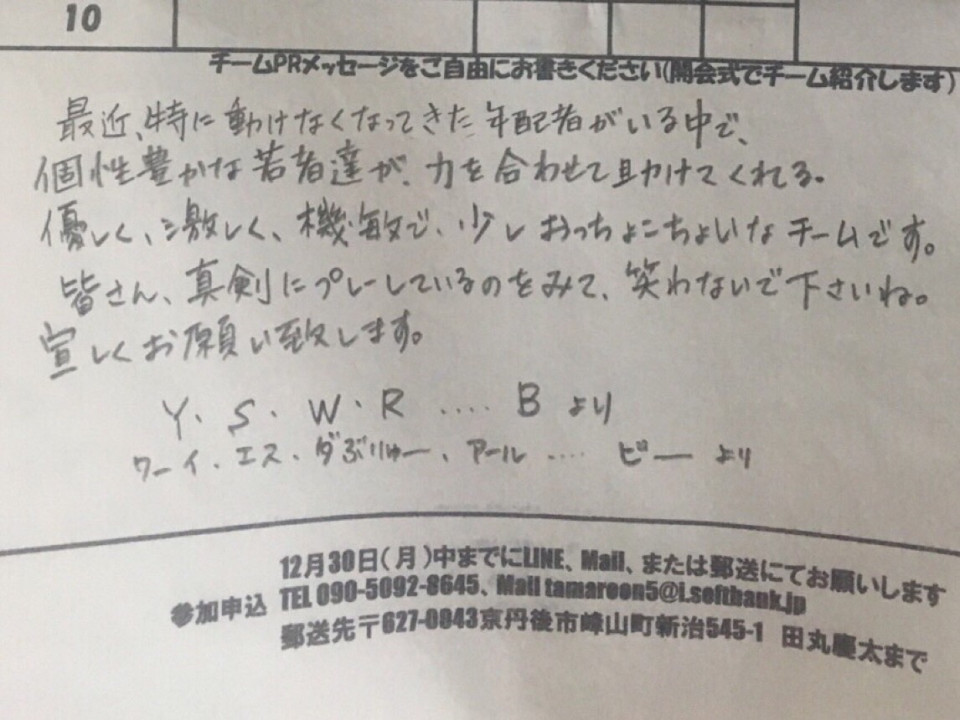 10
チームPRメッセージをご自由にお書きください(開会式でチーム紹介します)
最近、特に動けなくなってきた年配者がいる中で、
個性豊かな若者達が、力を合わせて助けてくれる。
優しく、激しく、機敏で、少しおっちょこちょいなチームです。
皆さん、真剣にプレーしているのをみて、笑わないで下さいね。
宜しくお願い致します。
Y・S・W・R ‥‥ B より
ワーイ・エス・ダぶりゅー、アール ‥‥ ビー より
12月30日(月)中までにLINE、Mail、または郵送にてお願いします
参加申込 TEL 090-5092-8645、Mail tamareon5@i.softbank.jp
郵送先〒627-0043京丹後市峰山町新治545-1 田丸慶太まで